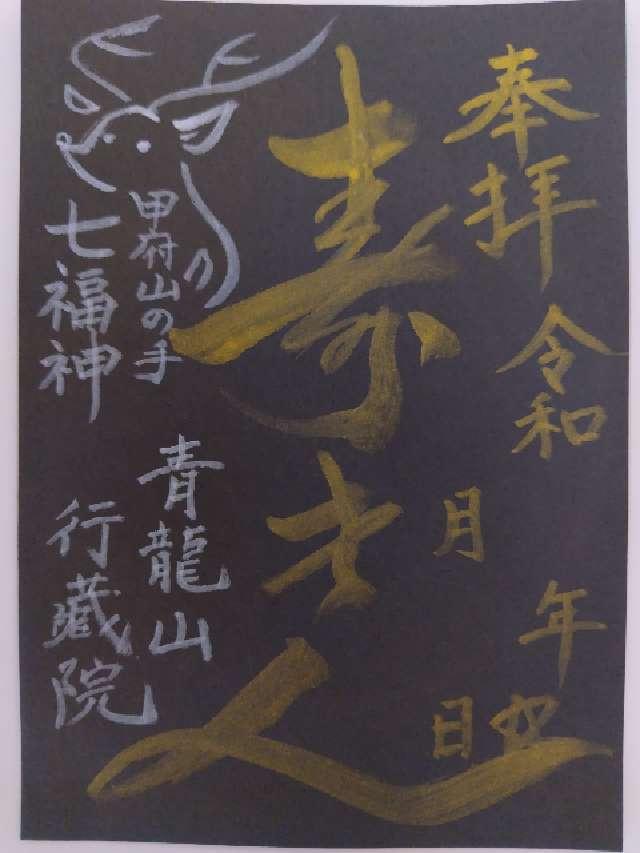 奉拝 令和 年
月 日
寿老人
甲府山の手
七福神
青龍山
行蔵院